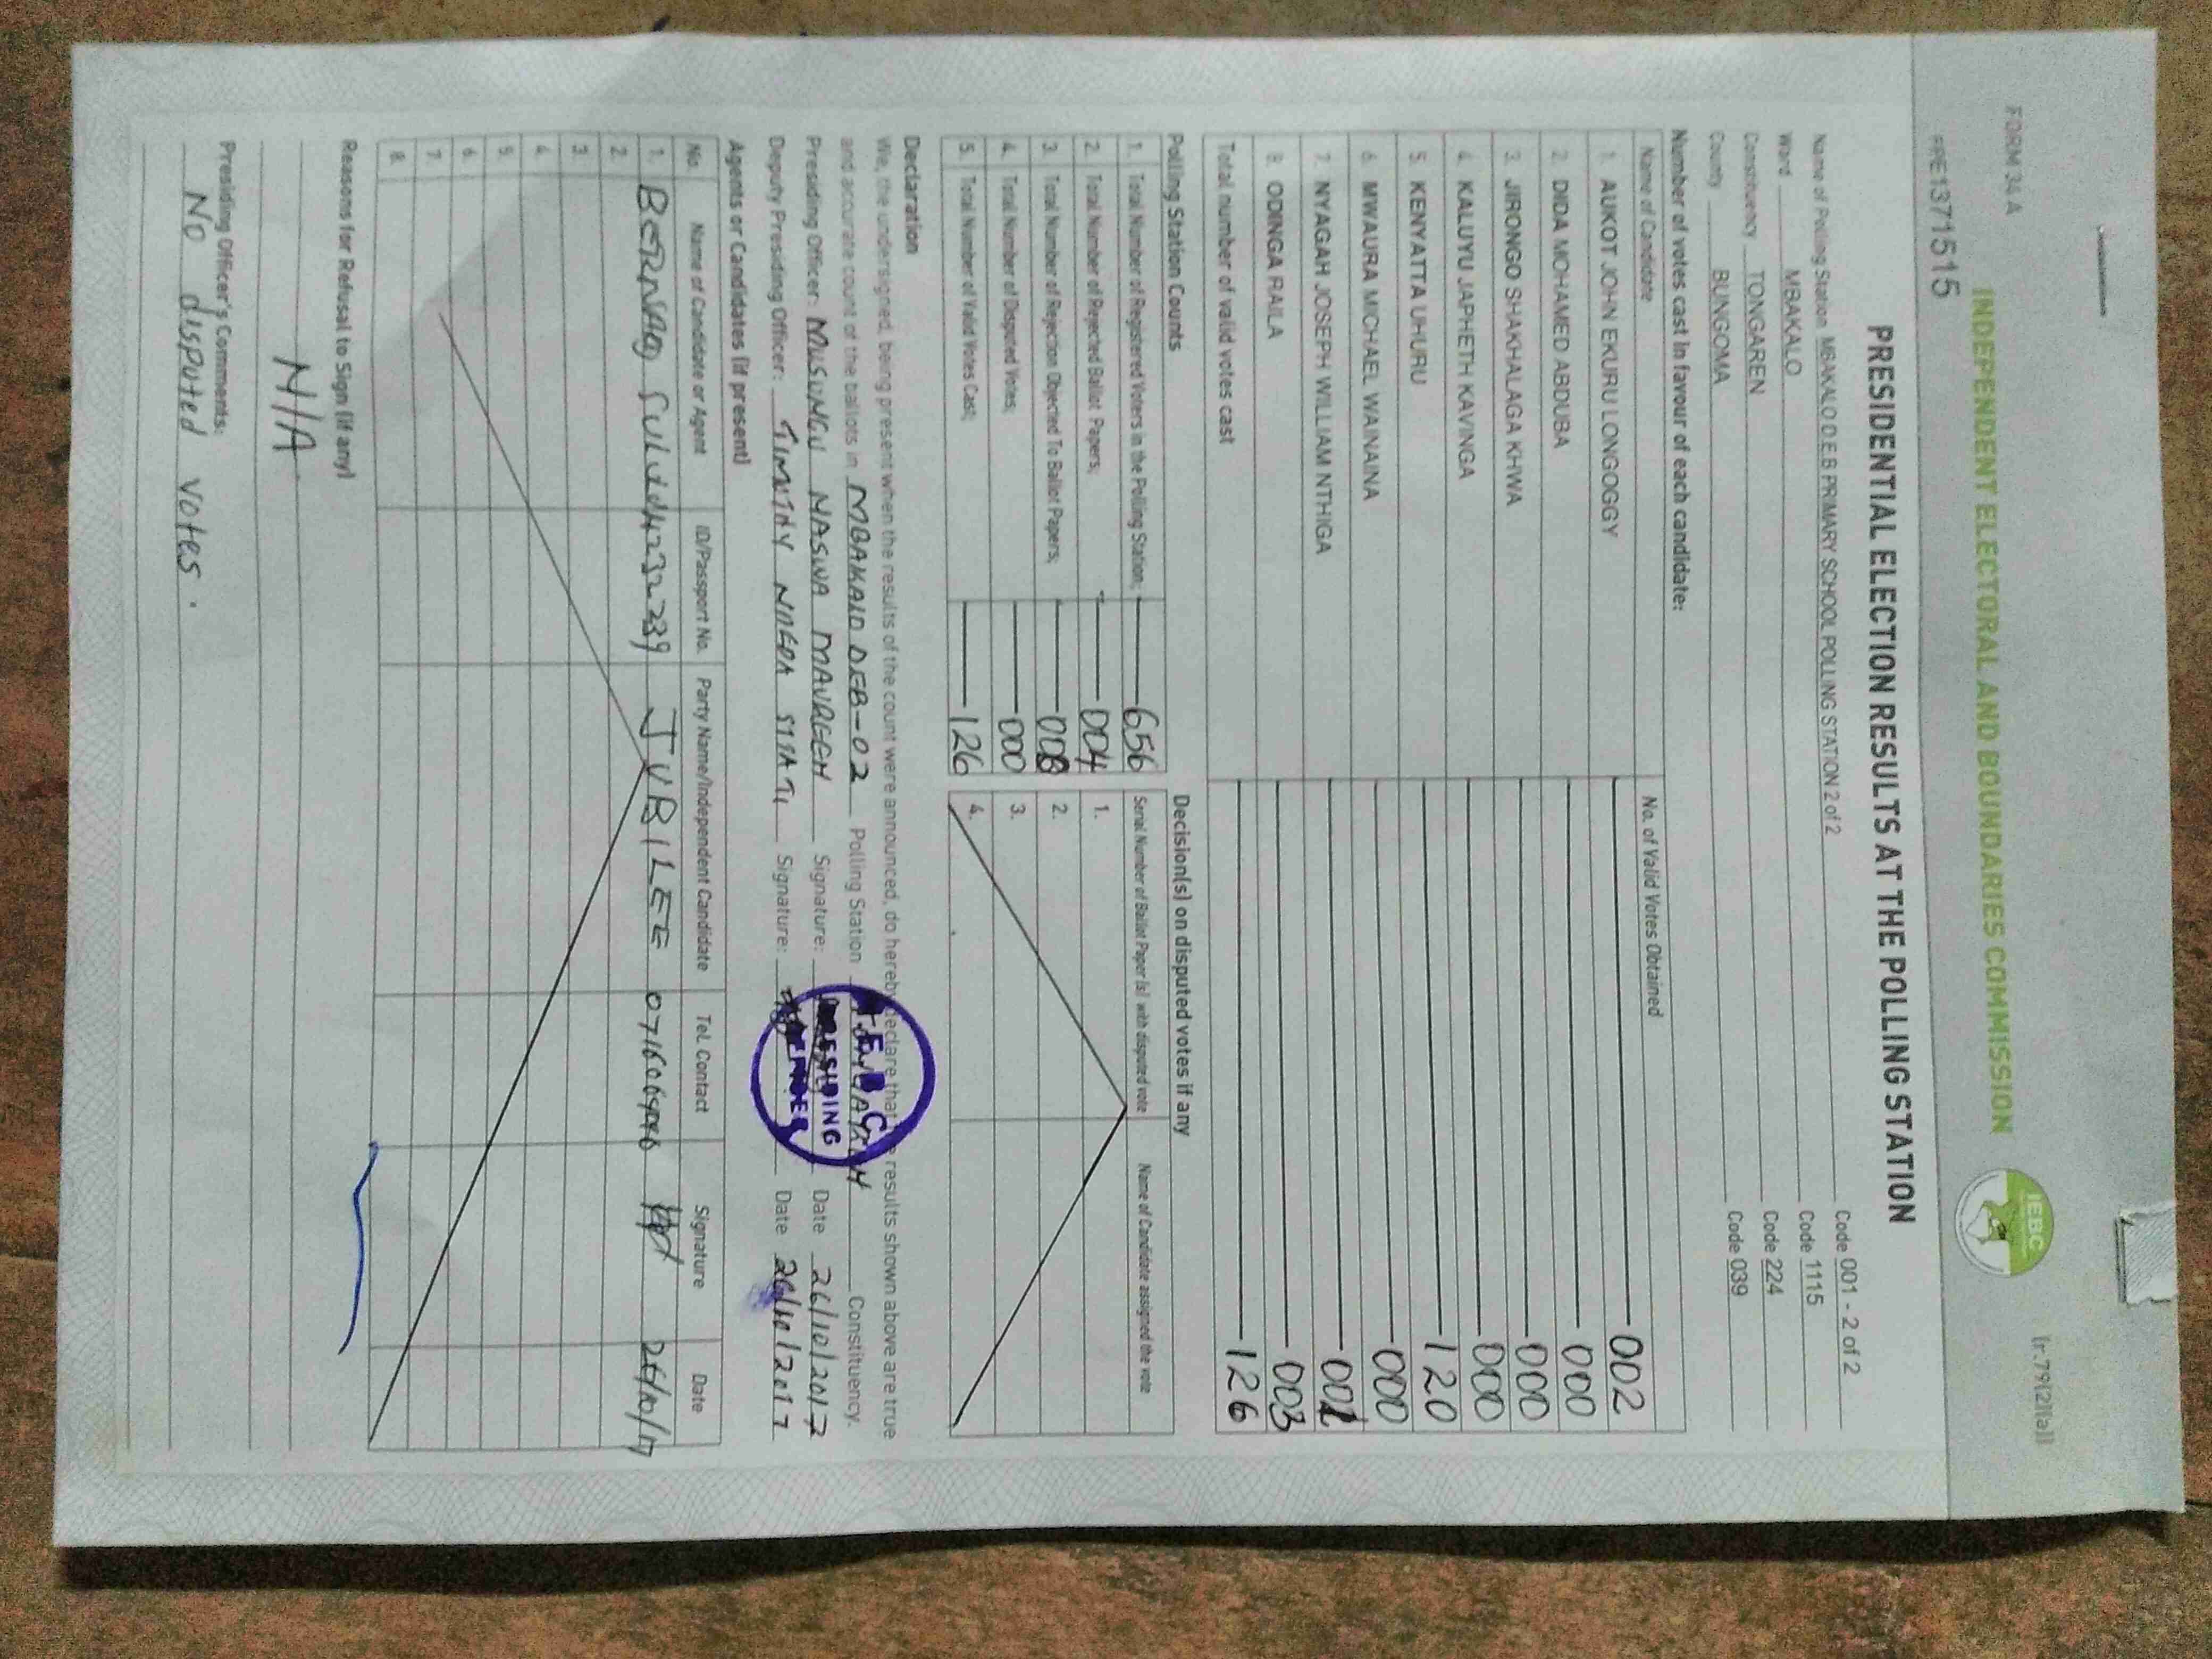 FORM 34 A
(r.79(2)(a))
INDEPENDENT ELECTORAL AND BOUNDARIES COMMISSION
IEBC
PRE1371515
PRESIDENTIAL ELECTION RESULTS AT THE POLLING STATION
Name of Polling Station MBAKALO D.E.B PRIMARY SCHOOL POLLING STATION 2 of 2 Code 001 - 2 of 2
Ward MBAKALO Code 1115
Constituency TONGAREN Code 224
County BUNGOMA Code 039
Number of votes cast in favour of each candidate:
Name of Candidate No. of Valid Votes Obtained
1. AUKOT JOHN EKURU LONGOGGY 002
2. DIDA MOHAMED ABDUBA 000
3. JIRONGO SHAKHALAGA KHWA 000
4. KALUYU JAPHETH KAVINGA 000
5. KENYATTA UHURU 120
6. MWAURA MICHAEL WAINAINA 000
7. NYAGAH JOSEPH WILLIAM NTHIGA 001
8. ODINGA RAILA 003
Total number of valid votes cast 126
Polling Station Counts
1. Total Number of Registered Voters in the Polling Station; 656
2. Total Number of Rejected Ballot Papers; 004
3. Total Number of Rejection Objected To Ballot Papers; 000
4. Total Number of Disputed Votes; 000
5. Total Number of Valid Votes Cast; 126
Decision(s) on disputed votes if any
Serial Number of Ballot Paper (s) with disputed vote Name of Candidate assigned the vote
1.
2.
3.
4.
Declaration
We, the undersigned, being present when the results of the count were announced, do hereby declare that the results shown above are true
and accurate count of the ballots in MBAKALO DEB-02 Polling Station TONGAREN Constituency.
Presiding Officer: MUSUNGU NASWA MAUREEN Signature: Date 26/10/2017
Deputy Presiding Officer: Signature: Date 26/10/2017
I.E.B.C
PRESIDING
OFFICER
Agents or Candidates (if present)
No. Name of Candidate or Agent ID/Passport No. Party Name/Independent Candidate Tel. Contact Signature Date
1. JUBILEE 26/10/17
2.
3.
4.
5.
6.
7.
8.
Reasons for Refusal to Sign (if any)
N/A
Presiding Officer's Comments:
No disputed votes.